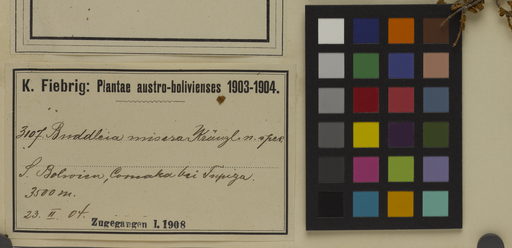 K. Fiebrig: Plantae austro-bolivienses 1903-1904.
3107. Buddleia misera Kränzl. n. spec.
S. Bolivien, Comaka bei Tupiza.
3500 m.
23. II. 04.
Zugegangen I. 1908